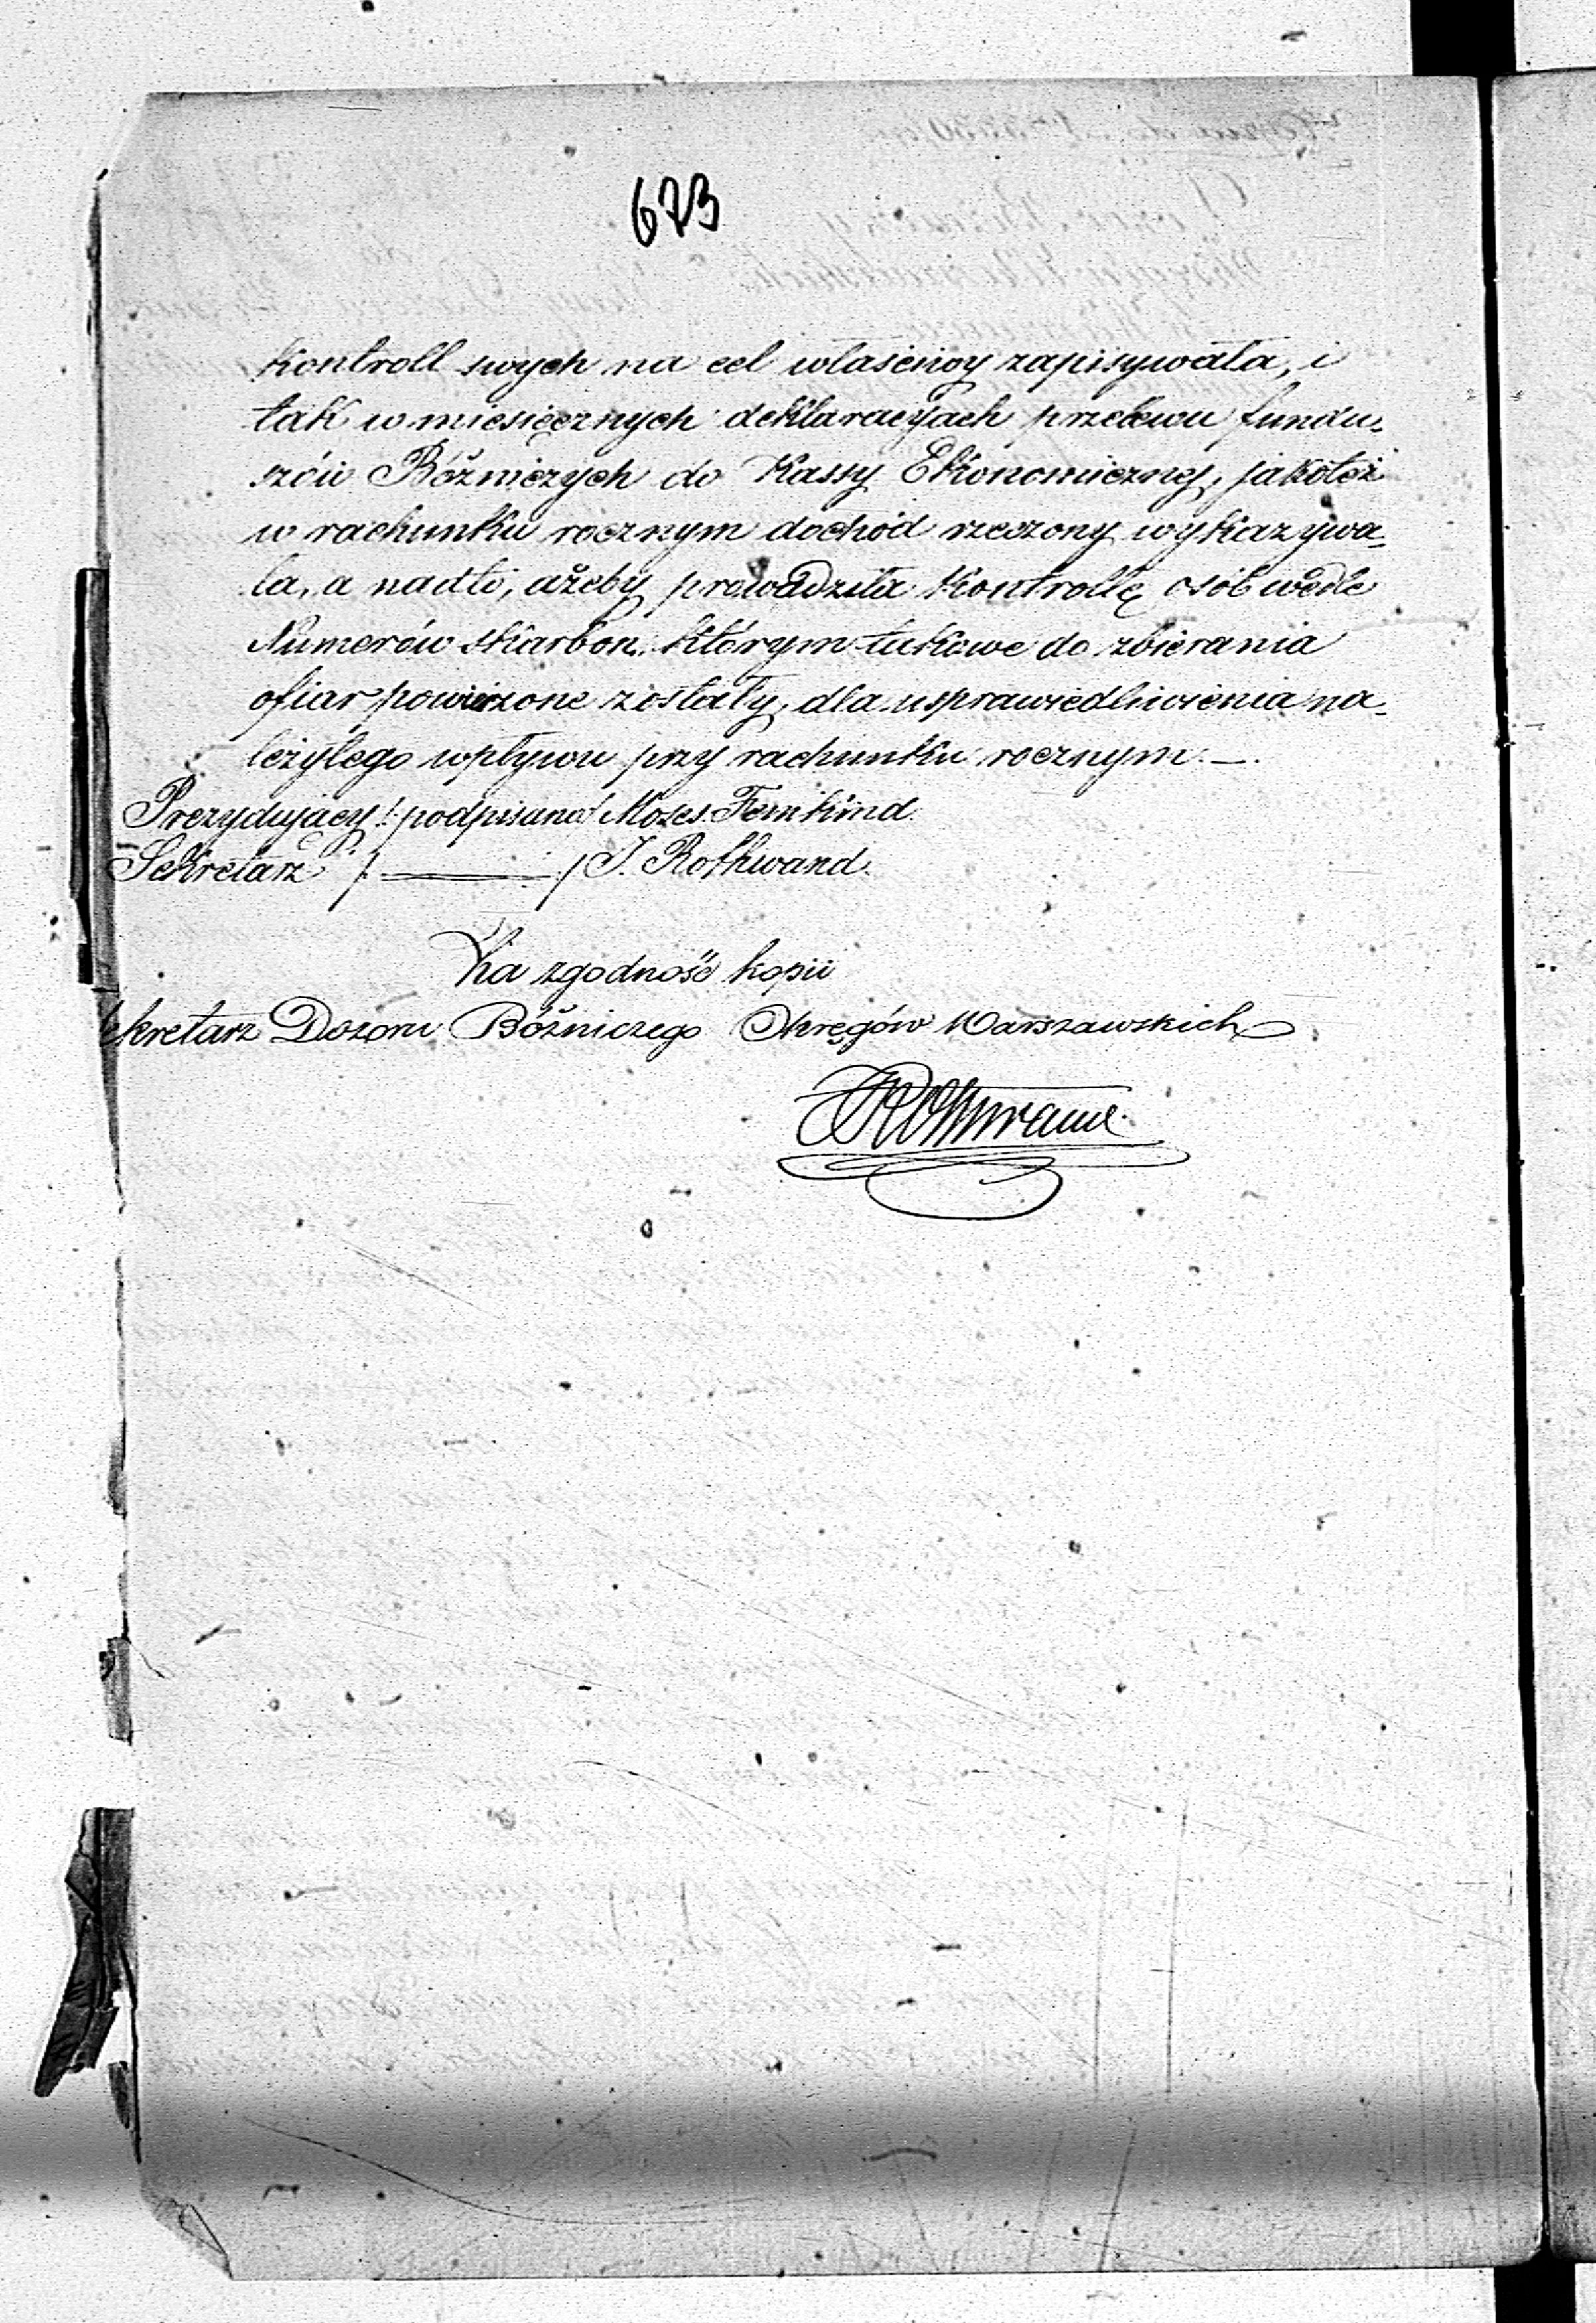 673
Kontroll swych na cel właściwy zapisywała, i
tak w miesięcznych deklaracyjach przelewu fundu-
szów Bóżniczych do Kassy Ekonomicznej, jakoteż
w rachunku rocznym dochód rzeczony wykazywa-
ła, a nadto, ażeby prowadziła Kontrollę osób wedle
Numerów skarbon, którym takowe do zbierania
ofiar powierzone zostały, dla usprawiedliwienia na-
leżytego wpływu przy rachunku rocznym. —
Prezydujący /: podpisano / Mozes Feinkind.
Sekretarz /: ——— :/ J. Rothwand.
Za zgodność kopii
ekretarz Dozoru Bóżniczego Okręgów Warszawskich
JRothwand.